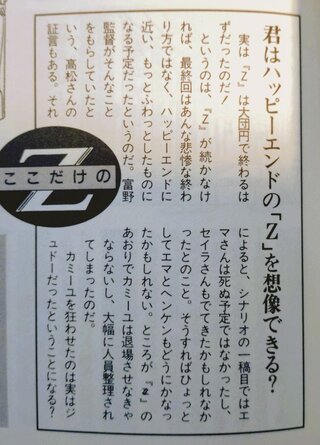 君はハッピーエンドの「Z」を想像できる？
実は『Z』は大団円で終わるは
ずだったのだ！
というのは、『Z』が続かなけ
れば、最終回はあんな悲惨な終わ
り方ではなく、ハッピーエンドに
近い、もっとふわっとしたものに
なる予定だったというのだ。富野
監督がそんなこと
をもらしていたと
いう、高松さんの
証言もある。それ
ここだけの
Z
によると、シナリオの一稿目ではエ
マさんは死ぬ予定ではなかったし、
セイラさんもでてきたかもしれなか
ったとのこと。そうすればひょっと
してエマとヘンケンもどうにかなっ
たかもしれない。ところが『ZZ』の
あおりでカミーユは退場させなきゃ
ならないし、大幅に人員整理され
てしまったのだ。
カミーユを狂わせたのは実はジ
ュドーだったということになる？